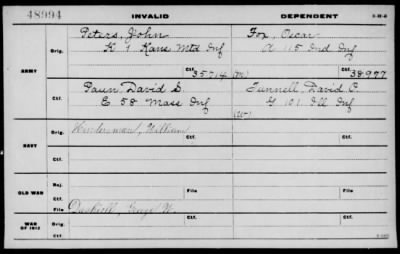 48994
INVALID
DEPENDENT
3-312
ARMY
Orig.
Peters, John
Fox, Oscar
1 Kans Mtd Inf
A 115 Ind Inf
Ctf.
35714
Ctf.
38977
Ctf.
David S.
Tunnell, David C.
E 58 Mass Inf
G 101 Ill Inf
NAVY
Orig.
William
Ctf.
OLD WAR
Rej.
Ctf.
File
File
WAR OF 1812
Orig.
George W.
Ctf.
Ctf.